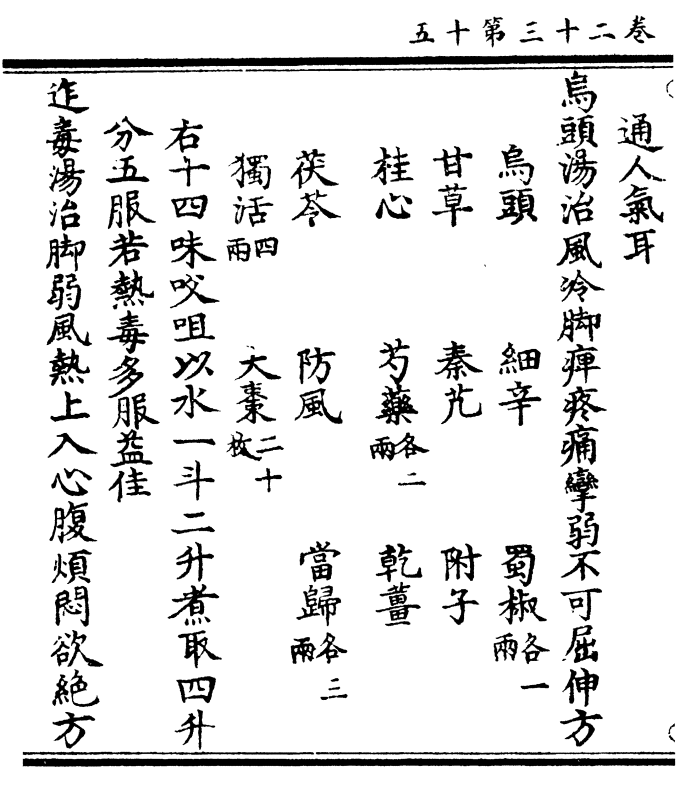 卷二十三第十五
通人氣耳
烏頭湯治風冷脚痺疼痛攣弱不可屈伸方
烏頭 細辛 蜀椒各一兩
甘草 秦艽 附子
桂心 芍藥各二兩 乾薑
茯苓 防風 當歸各三兩
獨活四兩 大棗二十枚
右十四味㕮咀以水一斗二升煮取四升
分五服若熱毒多服益佳
迮毒湯治脚弱風熱上入心腹煩悶欲絶方